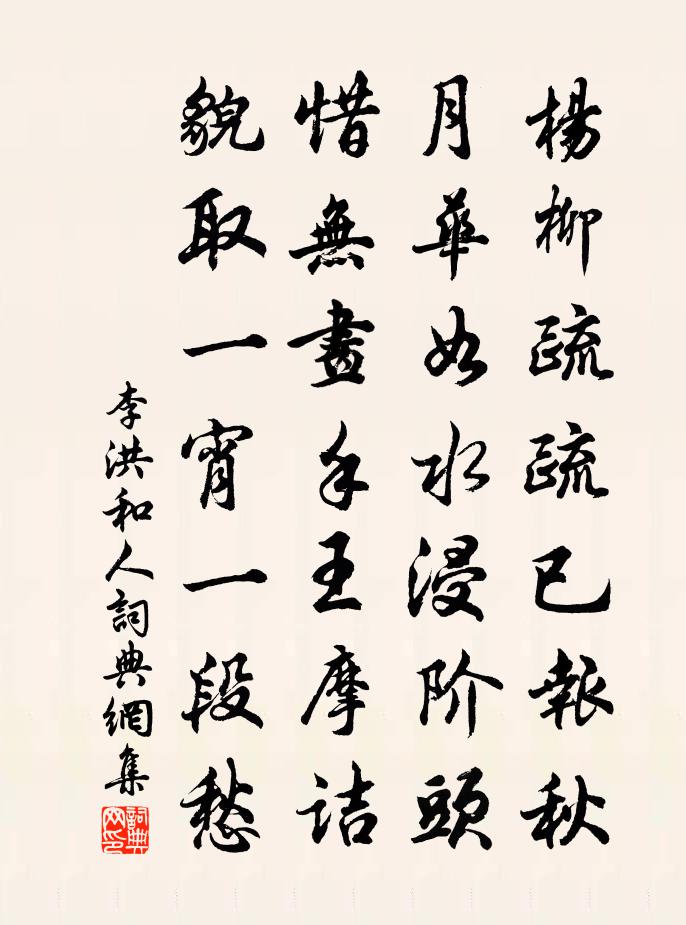 楊柳疏疏已報秋
月華如水浸阶頭
惜無畫手王摩詰
貌取一宵一段愁
李洪和人詞典網集
詞典网印